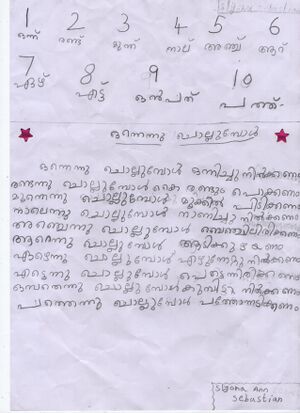 1 2 3 4 5 6
ഒന്ന് രണ്ട് മൂന്ന് നാല് അഞ്ച് ആറ്
7 8 9 10
ഏഴ് എട്ട് ഒൻപത് പത്ത്
ഒന്നെന്നു ചൊല്ലുമ്പോൾ
ഒന്നെന്നു ചൊല്ലുമ്പോൾ ഒന്നിച്ചു നിൽക്കണം
രണ്ടെന്നു ചൊല്ലുമ്പോൾ കൈ രണ്ടും പൊക്കണം
മൂന്നെന്നു ചൊല്ലുമ്പോൾ മൂക്കിൽ പിടിക്കണം
നാലെന്നു ചൊല്ലുമ്പോൾ നാണിച്ചു നിൽക്കണം
അഞ്ചെന്നു ചൊല്ലുമ്പോൾ ബെഞ്ചിലിരിക്കണം
ആറെന്നു ചൊല്ലുമ്പോൾ
ഏഴെന്നു ചൊല്ലുമ്പോൾ എഴുന്നേറ്റു നിൽക്കണം
എട്ടെന്നു ചൊല്ലുമ്പോൾ പെട്ടെന്നിരിക്കണം
ഒമ്പതെന്നു ചൊല്ലുമ്പോൾ കുമ്പിട്ടു നിൽക്കണം
പത്തെന്നു ചൊല്ലുമ്പോൾ
Slgona Ann
Sebastian